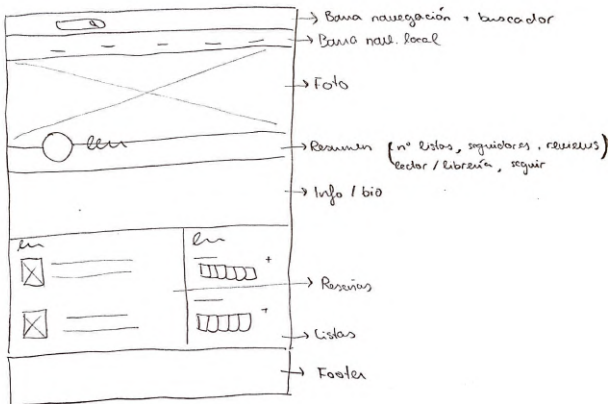 Barra navegación + buscador
Barra nav. local
Foto
Resumen (nº listas, seguidores, reviews)
lector / librería, seguir
Info / bio
Reseñas
Listas
Footer